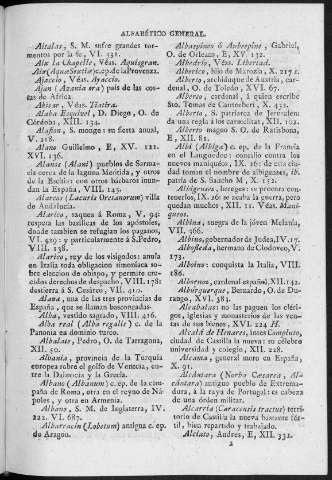 ALFABÉTICO GENERAL.
Aitalas, S. M. sufre grandes tor-
mentos por la fe, VI. 531.
Aix la Chapelle, Véas. Aquisgran.
Aix (Aquæ Sextiæ) c.ep.de la Provenza.
Ajaccio, Véas. Ayaccio.
Ajan (Azania ora) pais de las cos-
tas de Africa.
Véas. Yiatira.
Alaba Esquivel, D. Diego, O. de
Córdoba, XIII. 134.
Alafion, S. monge: su fiesta anual,
V. 218.
Alano Guillelmo, E, XV. 121.
XVI. 136.
Alanos (Alani) pueblos de Sarma-
cia cerca de la laguna Meótida, y otros
de la Escitia: con otros bárbaros inun-
dan la España, VIII. 145.
Alarcos (Lacuris Oretanorum) villa
de Andalucía.
Alarico, saquea á Roma, V. 94:
respeta las basílicas de los apóstoles,
donde tambien se refugian los paganos,
VI. 419: y particularmente á S.Pedro,
VIII. 138.
Alarico, rey de los visigodos: anula
en Italia toda obligacion simoníaca so-
bre eleccion de obispo, y permite cre-
cidos derechos de despacho, VIII. 178:
destierra á S. Cesáreo, VII. 410.
Alava, una de las tres provincias de
España, que se llaman bascongadas.
Alba, vestido sagrado, VIII. 416.
Alba real (Alba regalis) c. de la
Panonia en dominio turco.
Albalate, Pedro, O. de Tarragona,
XII. 50.
Albania, provincia de la Turquía
europea sobre el golfo de Venecia, en-
tre la Dalmacia y la Grecia.
Albano (Albanum) c. ep. de la cam-
paña de Roma, otra en el reyno de Ná-
poles, y otra en Armenia.
Albano, S. M. de Inglaterra, IV.
222. VI. 687.
Albarracin (Lobetum) antigua c. ep.
de Aragon.
Albaspines ó Aubespine, Gabriel,
O. de Orleans, E, XV. 132.
Albedrío, Véas. Libertad.
Alberico, hijo de Marozia, X. 217 s.
Alberto, archiduque de Austria, car-
denal, O. de Toledo, XVI. 67.
Alberto, cardenal, á quien escribe
Sto. Tomas de Cantorberi, X. 431.
Alberto, S. patriarca de Jerusalen:
da una regla á los carmelitas, XII. 102.
Alberto magno S. O. de Ratisbona,
E, XII. 81.
Albi (Albiga) c. ep. de la Francia
en el Languedoc: concilio contra los
nuevos maniqueos, IX. 26: de esta ciu-
dad toman el nombre de albigenses, ib.
patria de S. Saucho M, X. 131.
Albigenses, hereges: se procura con-
tenerlos, IX. 26: se acaba la guerra, pero
quedan muchos, XII. 12. Véas. Mani-
queos.
Albina, suegra de la jóven Melania,
VII. 366.
Albino, gobernador de Judea, IV. 17.
Albofleda, hermana de Clodoveo, V.
173.
Alboino: conquista la Italia, VIII.
186.
Albornoz, cardenal español, XII. 142.
Alburquerque, Bernardo, O. de Du-
rango, XVI. 383.
Alcabalas: no las paguen los cléri-
gos, iglesias y monasterios de las ven-
tas de sus bienes, XVI. 224. H.
Alcalá de Henares, ántes Complutum,
ciudad de Castilla la nueva: su célebre
universidad y colegio, XII. 228.
Alcama, general moro en España,
X. 91.
Alcántara (Norba Cæsarea, Al-
cántara) antiguo pueblo de Extrema-
dura, á la raya de Portugal: es cabeza
de una órden militar.
Alcarria (Caracensis tractus) terri-
torio de Castilla la nueva bastante fér-
til, bien repartido y trabajado.
Alciato, Andres, E, XII. 332.
2